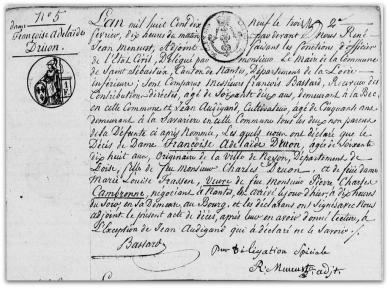 N.° 5
dame
Françoise Adelaïde
Druon.
L'an mil huit Cent dix neuf le trois
fevrier, dix heures du matin par devant nous René
Jean Meneust, Adjoint faisant les fonctions d'officier
de l'Etat Civil, Délégué par Monsieur Le Maire de la Commune
de Saint Sébastien, Canton de Nantes, Département de la Loire
inferieure; sont Comparu Monsieur François Bassard, Receveur des
Contributions directes, agé de Soixante dix ans, demeurant à la
en cette Commune et Jean Audigand, Cultivateur, agé de Cinquante ans
demeurant à la Savarière en cette Commune tous les deux non parens
de la Defunte ci après Nommée, Les quels nous ont déclaré que le
Décès de Dame Françoise Adelaïde Druon, agée de Soixante
dix huit ans, Originaire de la Ville de Noyon, Département de
Loise, fille de feu Monsieur Charles Druon, et de feue dame
Marie Louise Frassen, Veuve de feu Monsieur Pierre Charles
Cambronne, négociant à Nantes, est arrivé hier à dix heures
du Soir, en Sa demeure au Bourg, et les déclarans ont Signé avec Nous
adjoint le présent acte de décès, après leur en avoir donné Lecture, à
l'Exception de Jean Audigand qui a déclaré ne le Savoir.
Bassard
Par Délégation Spéciale
R. Meneust adjt.